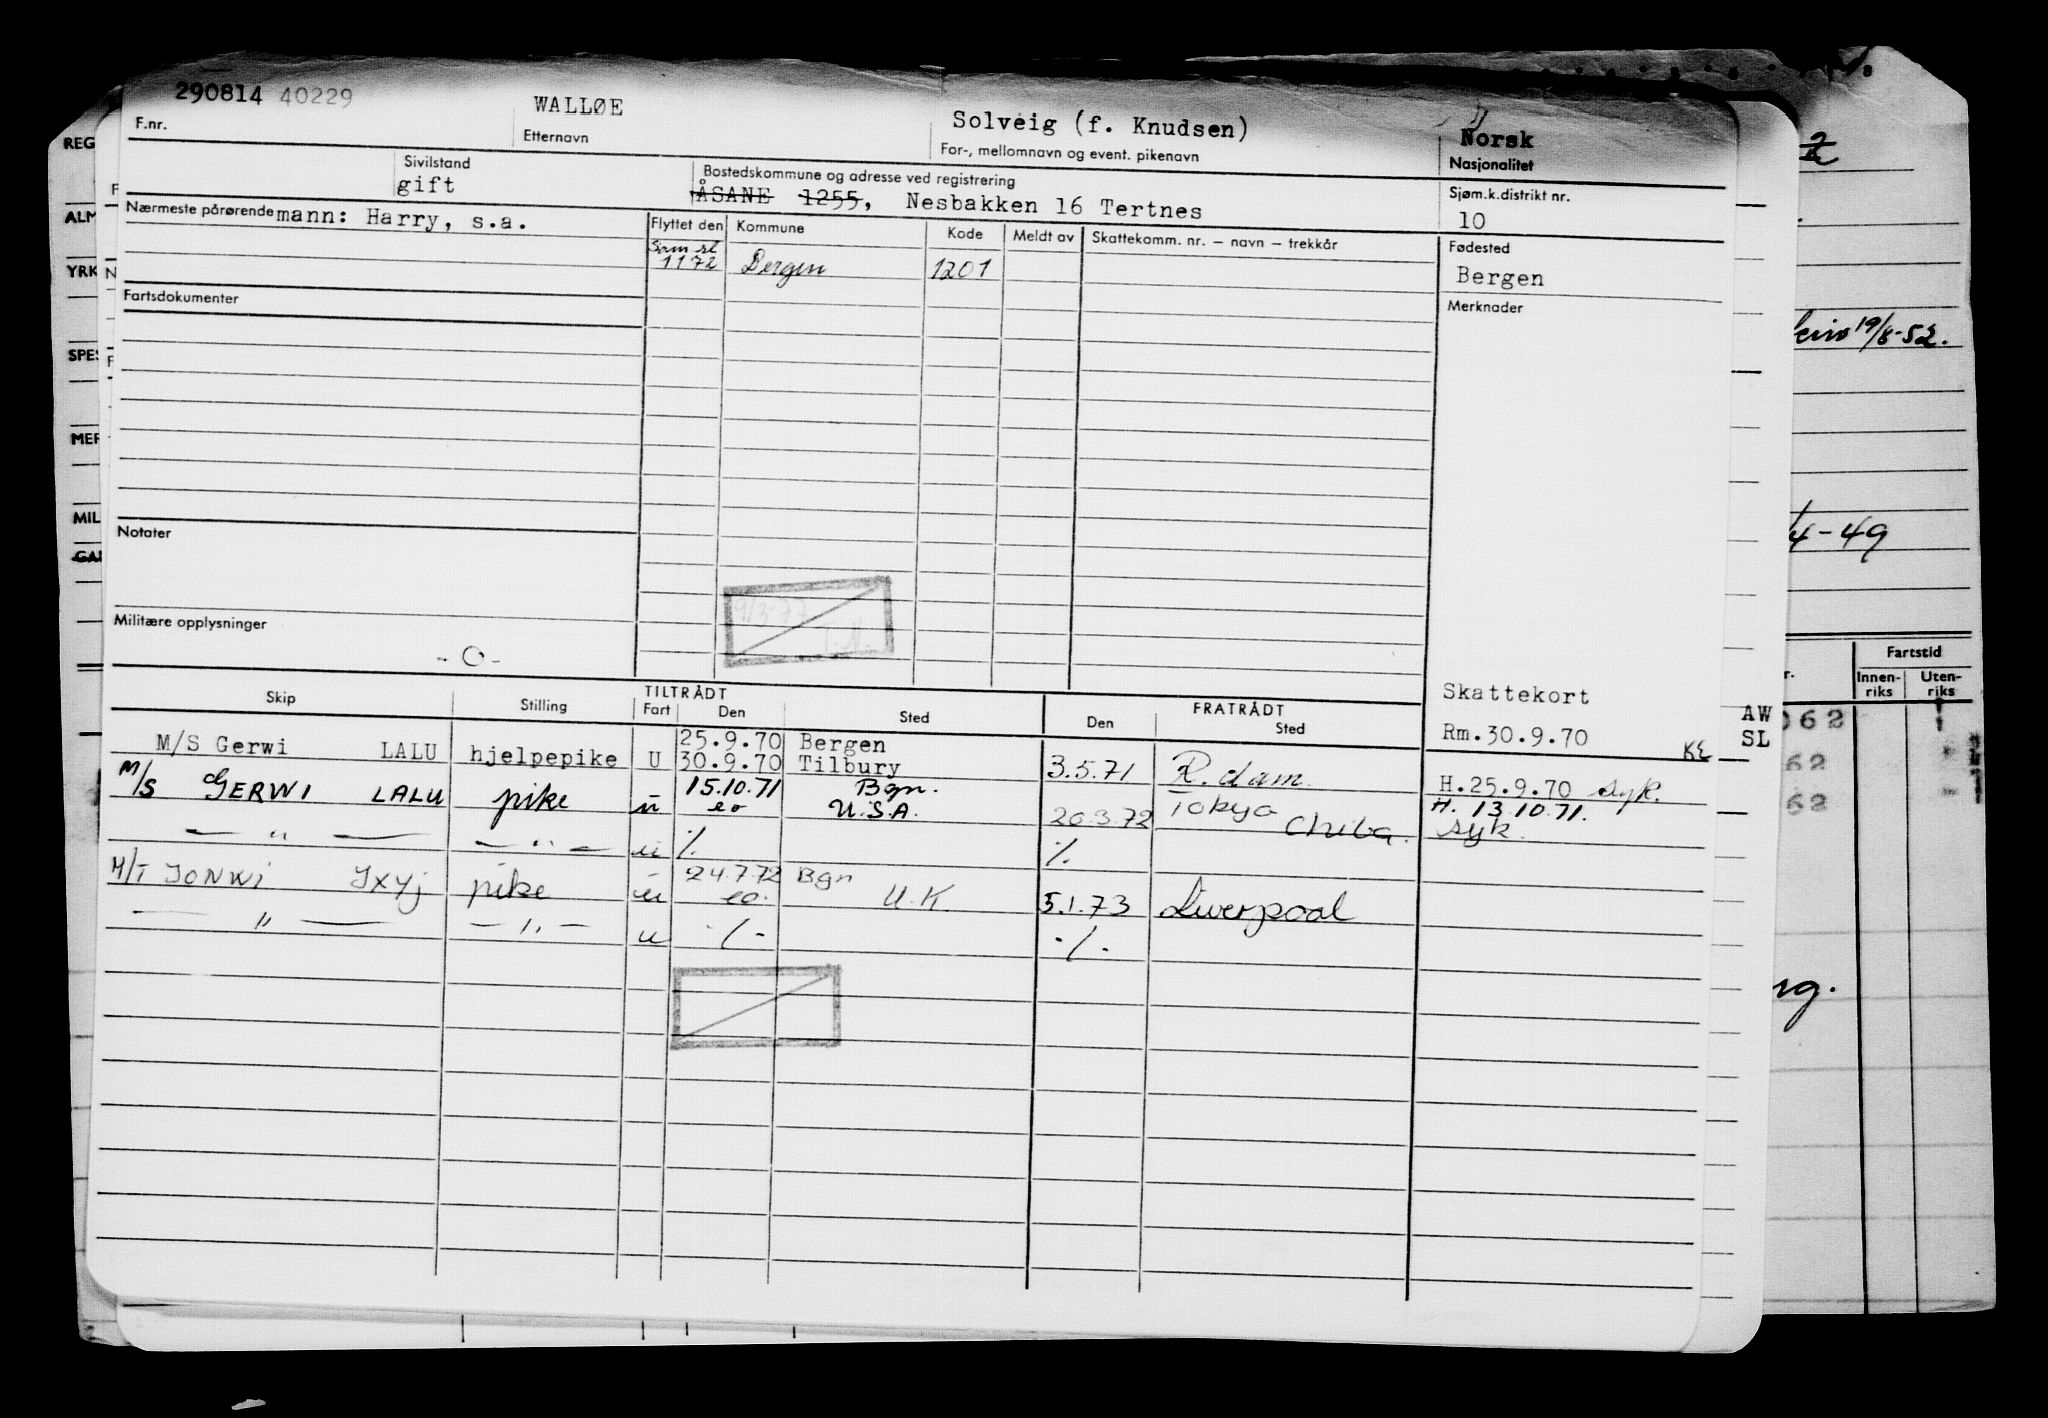 290814 40229 WALLØE Solveig (f. Knudsen) Norsk
F.nr. Etternavn For-, mellomnavn og event. pikenavn Nasjonalitet
Sivilstand Bostedskommune og adresse ved registrering Sjøm.k.distrikt nr.
gift ÅSANE 1255, Nesbakken 16 Tertnes 10
Nærmeste pårørende mann: Harry, s.a. Flyttet den Kommune Kode Meldt av Skattekomm. nr. – navn – trekkår Fødested
Sam.st
1172 Bergen 1201 Bergen
Fartsdokumenter Merknader
Notater
9/3-77
T.N.
Militære opplysninger
- O -
Skip Stilling TILTRÅDT FRATRÅDT Skattekort
Fart Den Sted Den Sted Rm.30.9.70
M/S Gerwi LALU hjelpepike U 25.9.70 Bergen
30.9.70 Tilbury 3.5.71 R.dam H.25.9.70 syk.
M/S GERWI LALU pike u 15.10.71 Bgn. H. 13.10.71.
eo U.S.A. 20.3.72 Tokyo Chiba. syk.
— " — — " — u ·/. ·/.
M/T JONWI JXYJ pike u 24.7.72 Bgn
eo. U.K 5.1.73 Liverpool
— " — — " — u ·/. ·/.
REG
ALM
YRK
SPES
MER
MIL
AW
SL
KE
19/8-52.
4-49
Fartstid
Innen-
riks
Uten-
riks
062
62
62